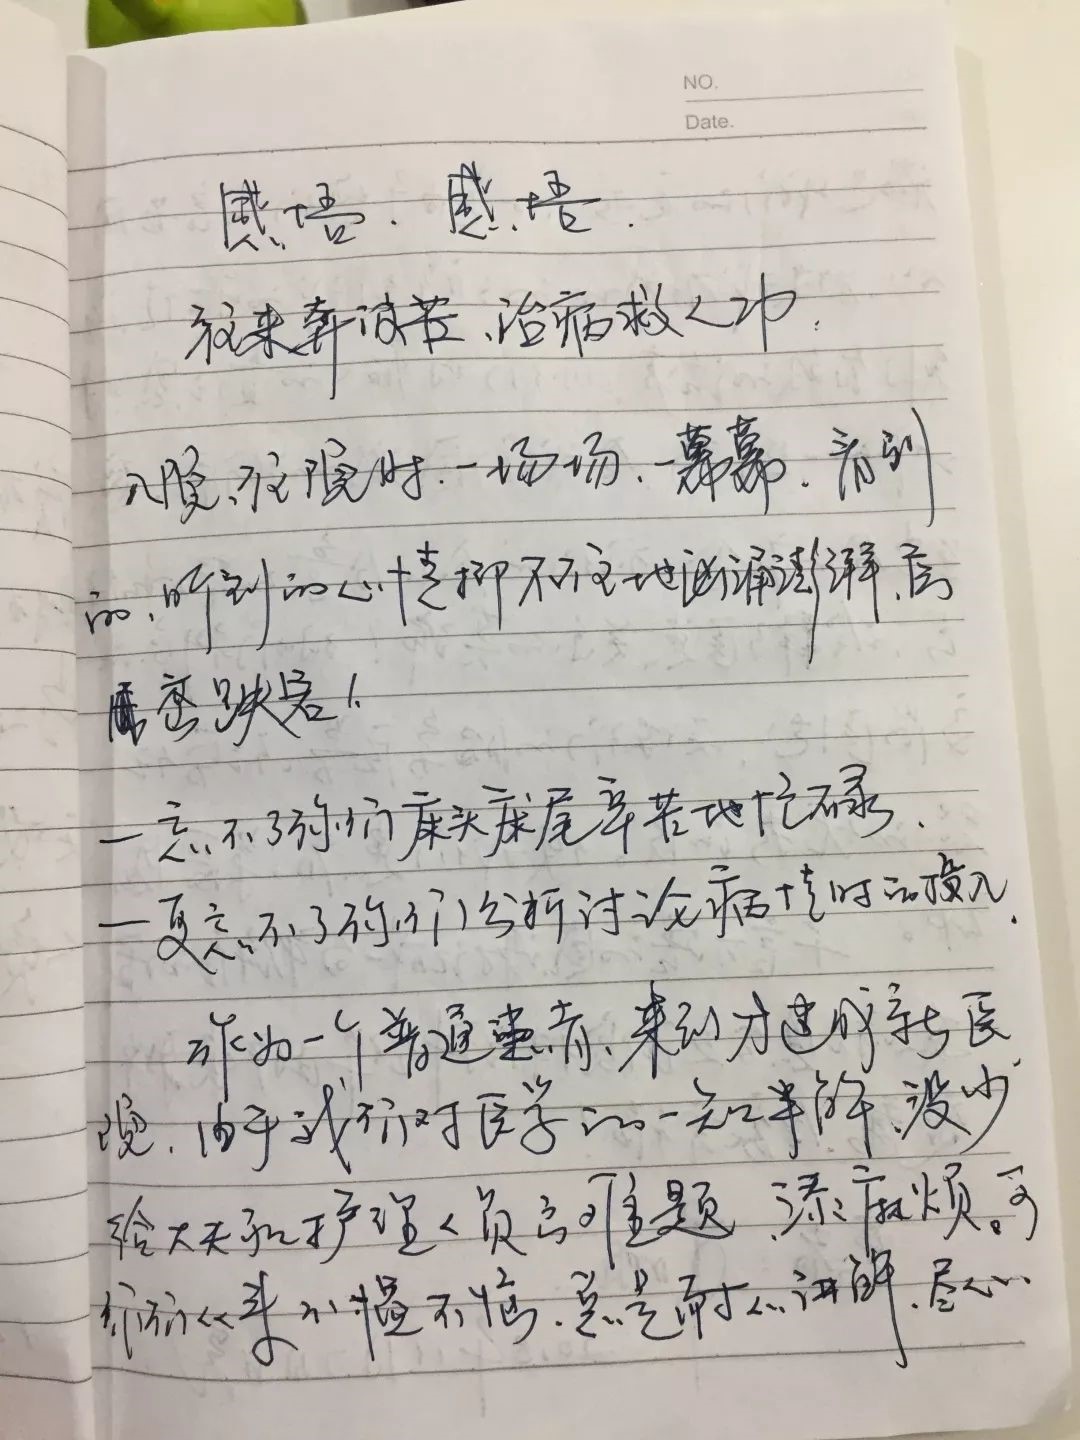 NO.
Date.
感悟、感悟.
往来奔波苦、治病救人功.
入院、住院时、一场场、一幕幕、看到
的、听到的心情抑不住地汹涌澎湃、高
峦跌宕!
一忘不了你们床头床尾辛苦地忙碌.
一更忘不了你们分析讨论病情时的投入.
作为一个普通患者、来到才建成新医
院、由于我们对医学的一知半解、没少
给大夫和护理人员出难题、添麻烦。可
你们从来不愠不恼、总是耐心讲解、尽心